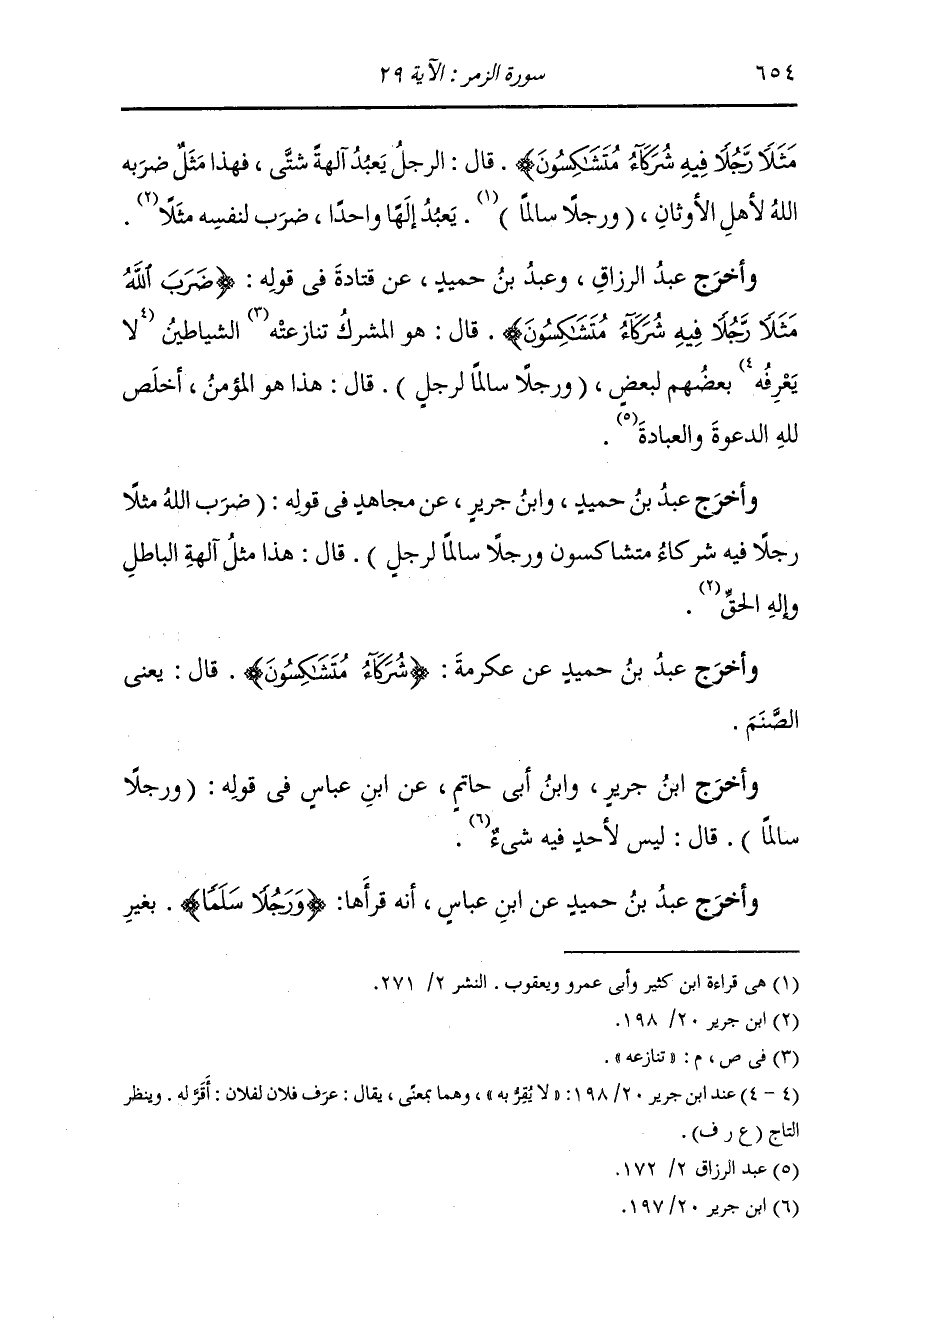 ٦٥٤ سورة الزمر : الآية ٢٩
مَثَلًا رَّجُلًا فِيهِ شُرَكَآءُ مُتَشَٰكِسُونَ﴾ . قال : الرجلُ يَعبُدُ آلهةً شتَّى ، فهذا مَثَلٌ ضرَبه
اللهُ لأهلِ الأوثانِ ، ( ورجلًا سالمًا )(١) . يَعبُدُ إلَهًا واحدًا ، ضرَب لنفسِه مثلًا(٢) .
وأخرَج عبدُ الرزاقِ ، وعبدُ بنُ حميدٍ ، عن قتادةَ فى قولِه : ﴿ضَرَبَ ٱللَّهُ
مَثَلًا رَّجُلًا فِيهِ شُرَكَآءُ مُتَشَٰكِسُونَ﴾ . قال : هو المشركُ تنازعتْه(٣) الشياطينُ (٤لا
يَعْرِفُه٤) بعضُهم لبعضٍ ، ( ورجلًا سالمًا لرجلٍ ) . قال : هذا هو المؤمنُ ، أخلَص
للهِ الدعوةَ والعبادةَ(٥) .
وأخرَج عبدُ بنُ حميدٍ ، وابنُ جريرٍ ، عن مجاهدٍ فى قولِه : ( ضرَب اللهُ مثلًا
رجلًا فيه شركاءُ متشاكسون ورجلًا سالمًا لرجلٍ ) . قال : هذا مثلُ آلهةِ الباطلِ
وإلهِ الحقِّ(٢) .
وأخرَج عبدُ بنُ حميدٍ عن عكرمةَ : ﴿شُرَكَآءُ مُتَشَٰكِسُونَ﴾ . قال : يعنى
الصَّنَمَ .
وأخرَج ابنُ جريرٍ ، وابنُ أبى حاتمٍ ، عن ابنِ عباسٍ فى قولِه : ( ورجلًا
سالمًا ) . قال : ليس لأحدٍ فيه شىءٌ(٦) .
وأخرَج عبدُ بنُ حميدٍ عن ابنِ عباسٍ ، أنه قرأَها: ﴿وَرَجُلًا سَلَمًا﴾ . بغيرِ
(١) هى قراءة ابن كثير وأبى عمرو ويعقوب . النشر ٢/ ٢٧١.
(٢) ابن جرير ٢٠/ ١٩٨.
(٣) فى ص ، م : « تنازعه » .
(٤ - ٤) عند ابن جرير ٢٠/ ١٩٨: « لا يُقِرُّ به » ، وهما بمعنًى ، يقال : عرَف فلان لفلان : أَقَرَّ له . وينظر
التاج (ع ر ف) .
(٥) عبد الرزاق ٢/ ١٧٢.
(٦) ابن جرير ٢٠/ ١٩٧.